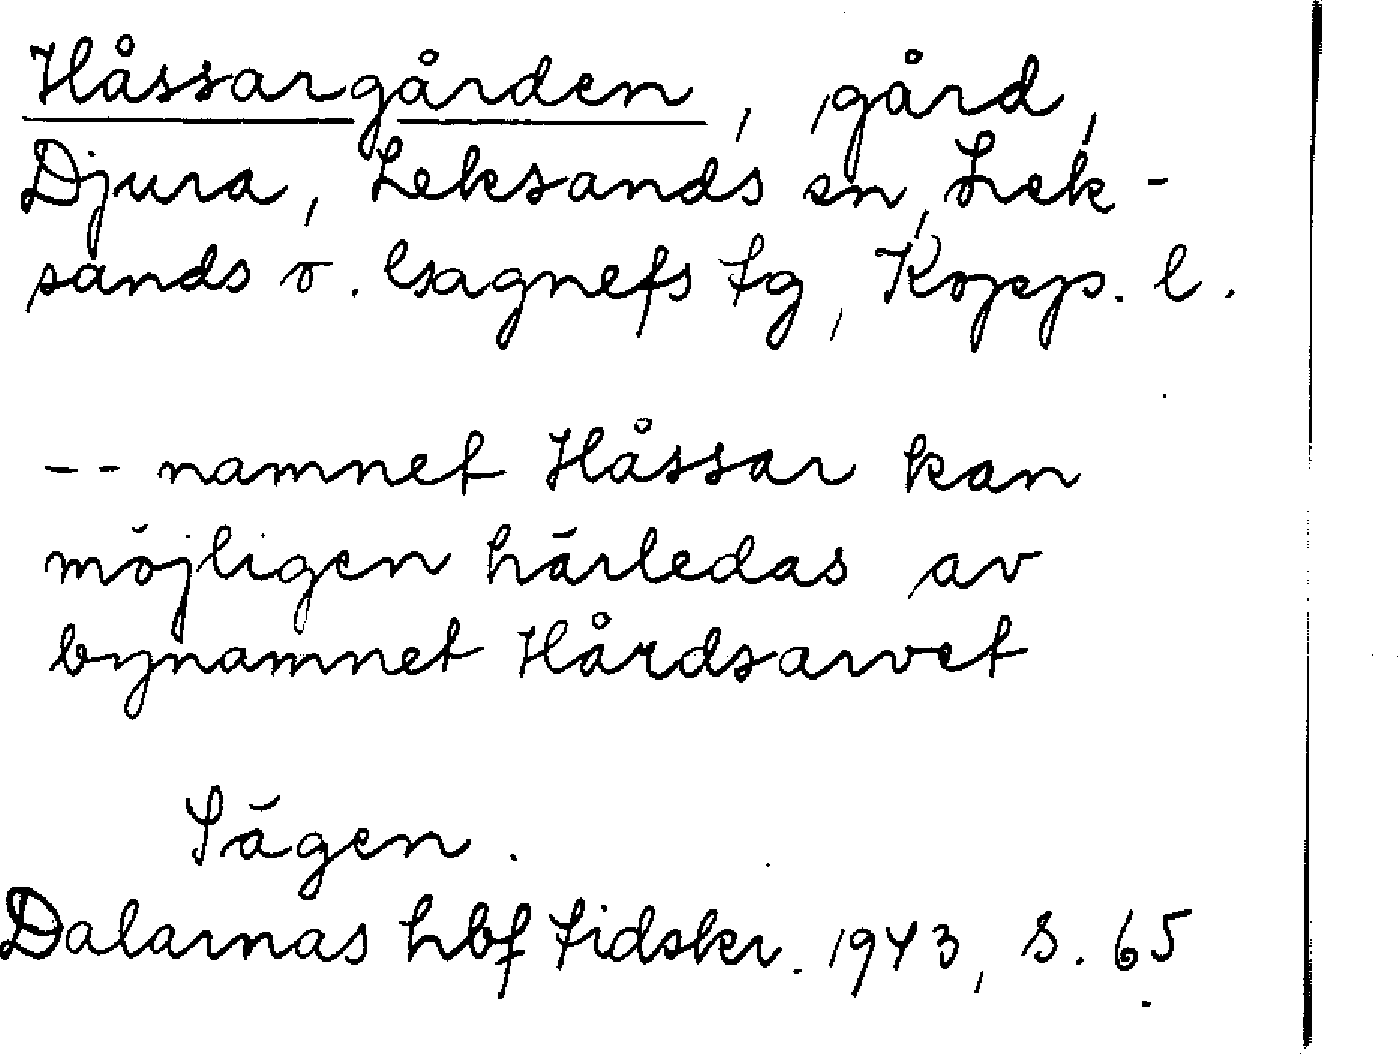 Håssargården, gård,
Djura, Leksands sn, Lek-
sands o. Gagnefs tg, Kopp. l.
-- namnet Håssar kan
möjligen härledas av
bynamnet Hårdsarvet
Sägen.
Dalarnas hbf tidskr. 1943, s. 65